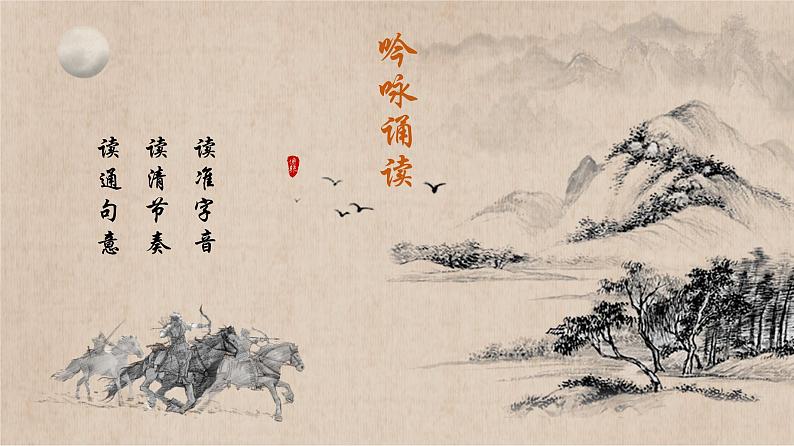 吟咏诵读
读准字音
读清节奏
读通句意